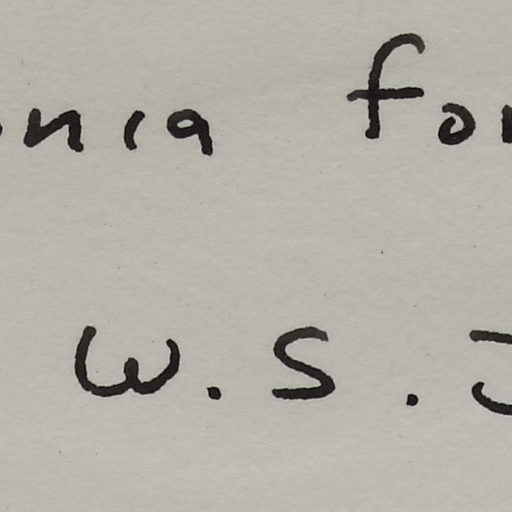 onia fo
W.S.